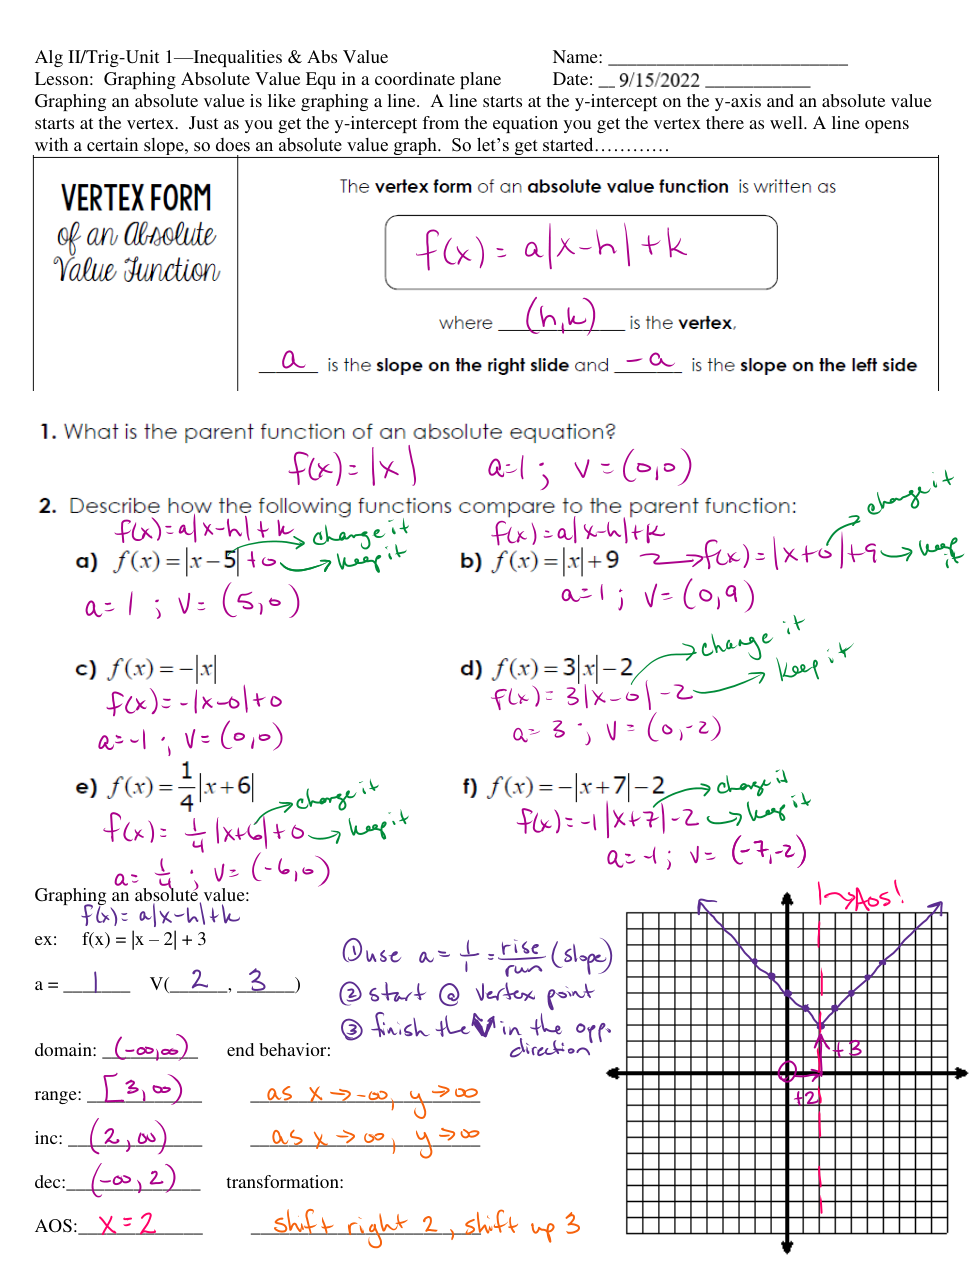 Alg II/Trig-Unit 1—Inequalities & Abs Value Name: ____________
Lesson: Graphing Absolute Value Equ in a coordinate plane Date: __ 9/15/2022 ____________
Graphing an absolute value is like graphing a line. A line starts at the y-intercept on the y-axis and an absolute value
starts at the vertex. Just as you get the y-intercept from the equation you get the vertex there as well. A line opens
with a certain slope, so does an absolute value graph. So let's get started…………
VERTEX FORM
of an Absolute
Value Function
The vertex form of an absolute value function is written as
f(x) = a|x-h| + k
where (h,k) is the vertex,
a is the slope on the right slide and -a is the slope on the left side
1. What is the parent function of an absolute equation?
f(x) = |x| a=1 ; v = (0,0)
2. Describe how the following functions compare to the parent function:
f(x) = a|x-h| + k → change it
a) f(x) = |x − 5| + 0 → keep it
a = 1 ; v = (5,0)
f(x) = a|x-h| + k → change it
b) f(x) = |x| + 9 → f(x) = |x+0| + 9 → keep it
a=1 ; v = (0,9)
c) f(x) = −|x|
f(x) = -|x-0| + 0
a = -1 ; v = (0,0)
→ change it
d) f(x) = 3|x| − 2 → keep it
f(x) = 3|x-0| -2
a = 3 ; v = (0,-2)
e) f(x) = 1/4|x + 6| → change it
f(x) = 1/4 |x+6| + 0 → keep it
a = 1/4 ; v = (-6,0)
f) f(x) = −|x + 7| − 2 → change it
f(x) = -1 |x+7| -2 → keep it
a = -1 ; v = (-7,-2)
Graphing an absolute value:
f(x) = a|x-h| + k
ex: f(x) = |x – 2| + 3
a = 1 V( 2 , 3 )
① use a = 1/1 = rise/run (slope)
② start @ vertex point
③ finish the V in the opp.
direction
domain: (-∞,∞) end behavior:
range: [3, ∞) as x → -∞, y → ∞
inc: (2, ∞) as x → ∞, y → ∞
dec: (-∞, 2) transformation:
AOS: x = 2 shift right 2, shift up 3
→ AOS!
+3
+2